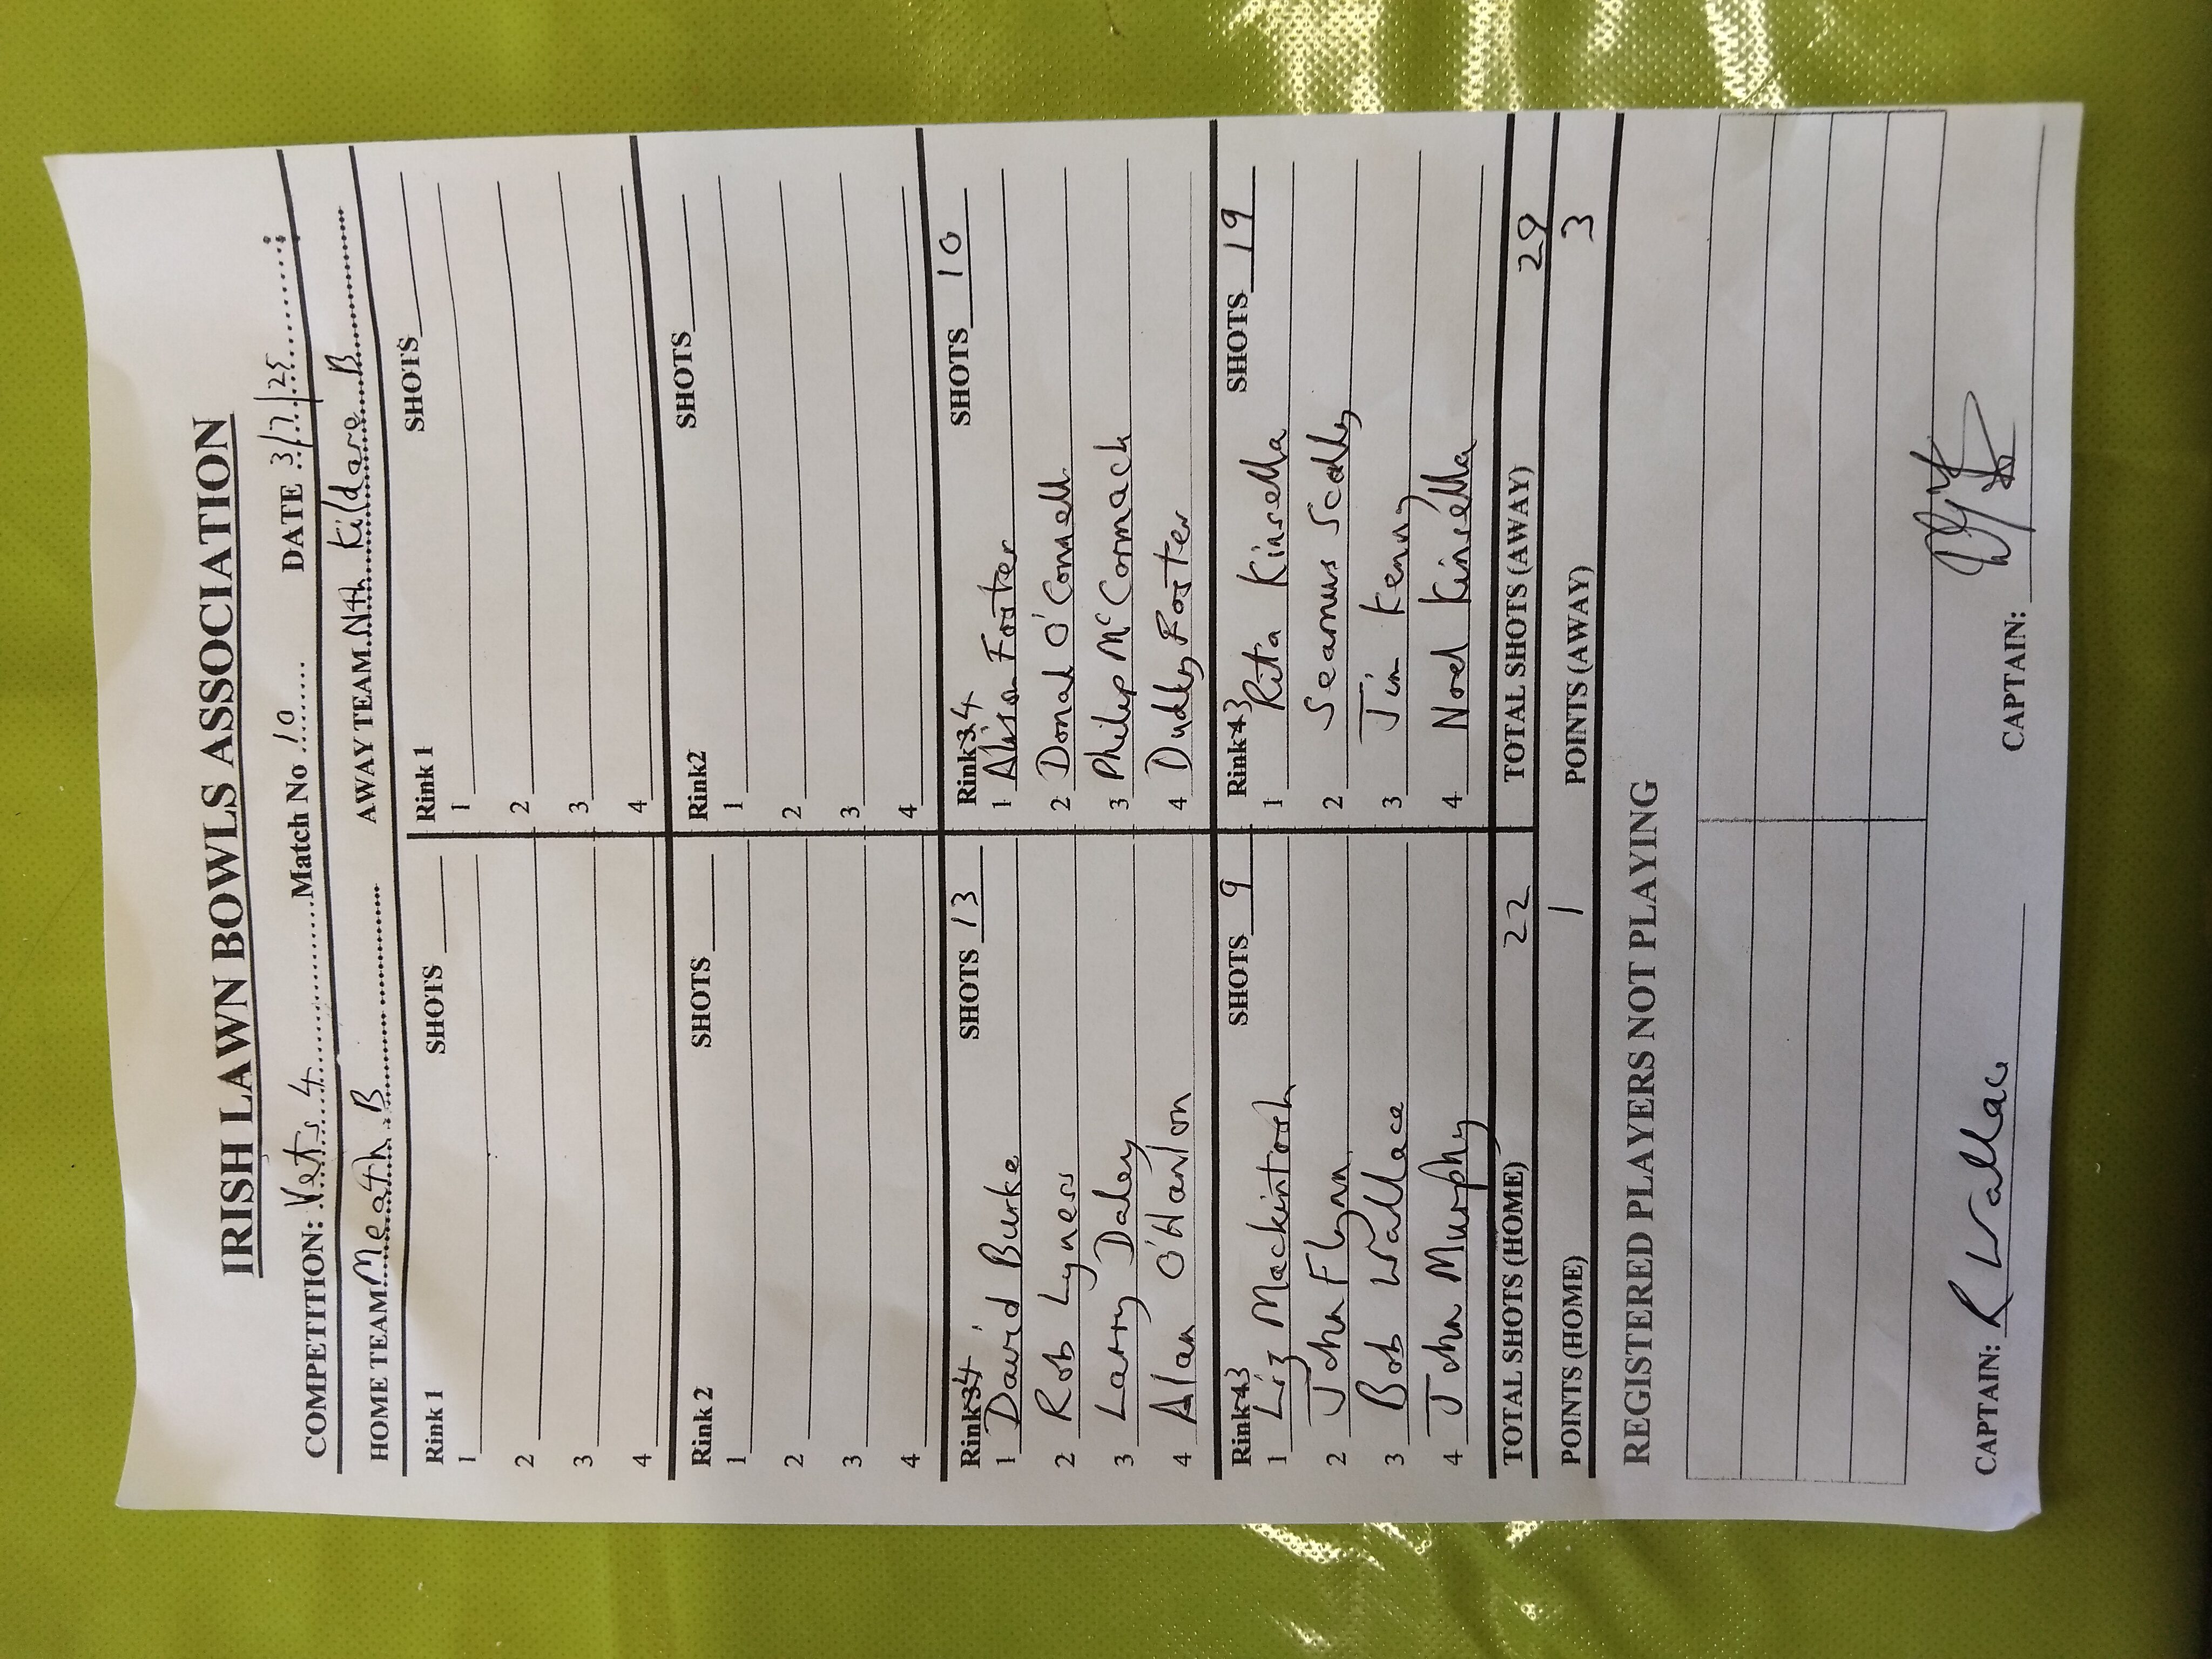 IRISH LAWN BOWLS ASSOCIATION
COMPETITION: Vets 4 Match No 10 DATE 3/7/25
HOME TEAM Meath B AWAY TEAM Nth Kildare B
Rink 1 SHOTS Rink 1 SHOTS
1 1
2 2
3 3
4 4
Rink 2 SHOTS Rink2 SHOTS
1 1
2 2
3 3
4 4
Rink 3 4 SHOTS 13 Rink 3 4 SHOTS 10
1 David Burke 1 Alison Foster
2 Rob Lyness 2 Donal O'Connell
3 Larry Daley 3 Philip McCormack
4 Alan O'Hanlon 4 Dudley Foster
Rink 4 3 SHOTS 9 Rink 4 3 SHOTS 19
1 Liz Mackintosh 1 Rita Kinsella
2 John Flynn 2 Seamus Scally
3 Bob Wallace 3 Jim Kenny
4 John Murphy 4 Noel Kinsella
TOTAL SHOTS (HOME) 22 TOTAL SHOTS (AWAY) 29
POINTS (HOME) 1 POINTS (AWAY) 3
REGISTERED PLAYERS NOT PLAYING
CAPTAIN: R Wallace CAPTAIN: